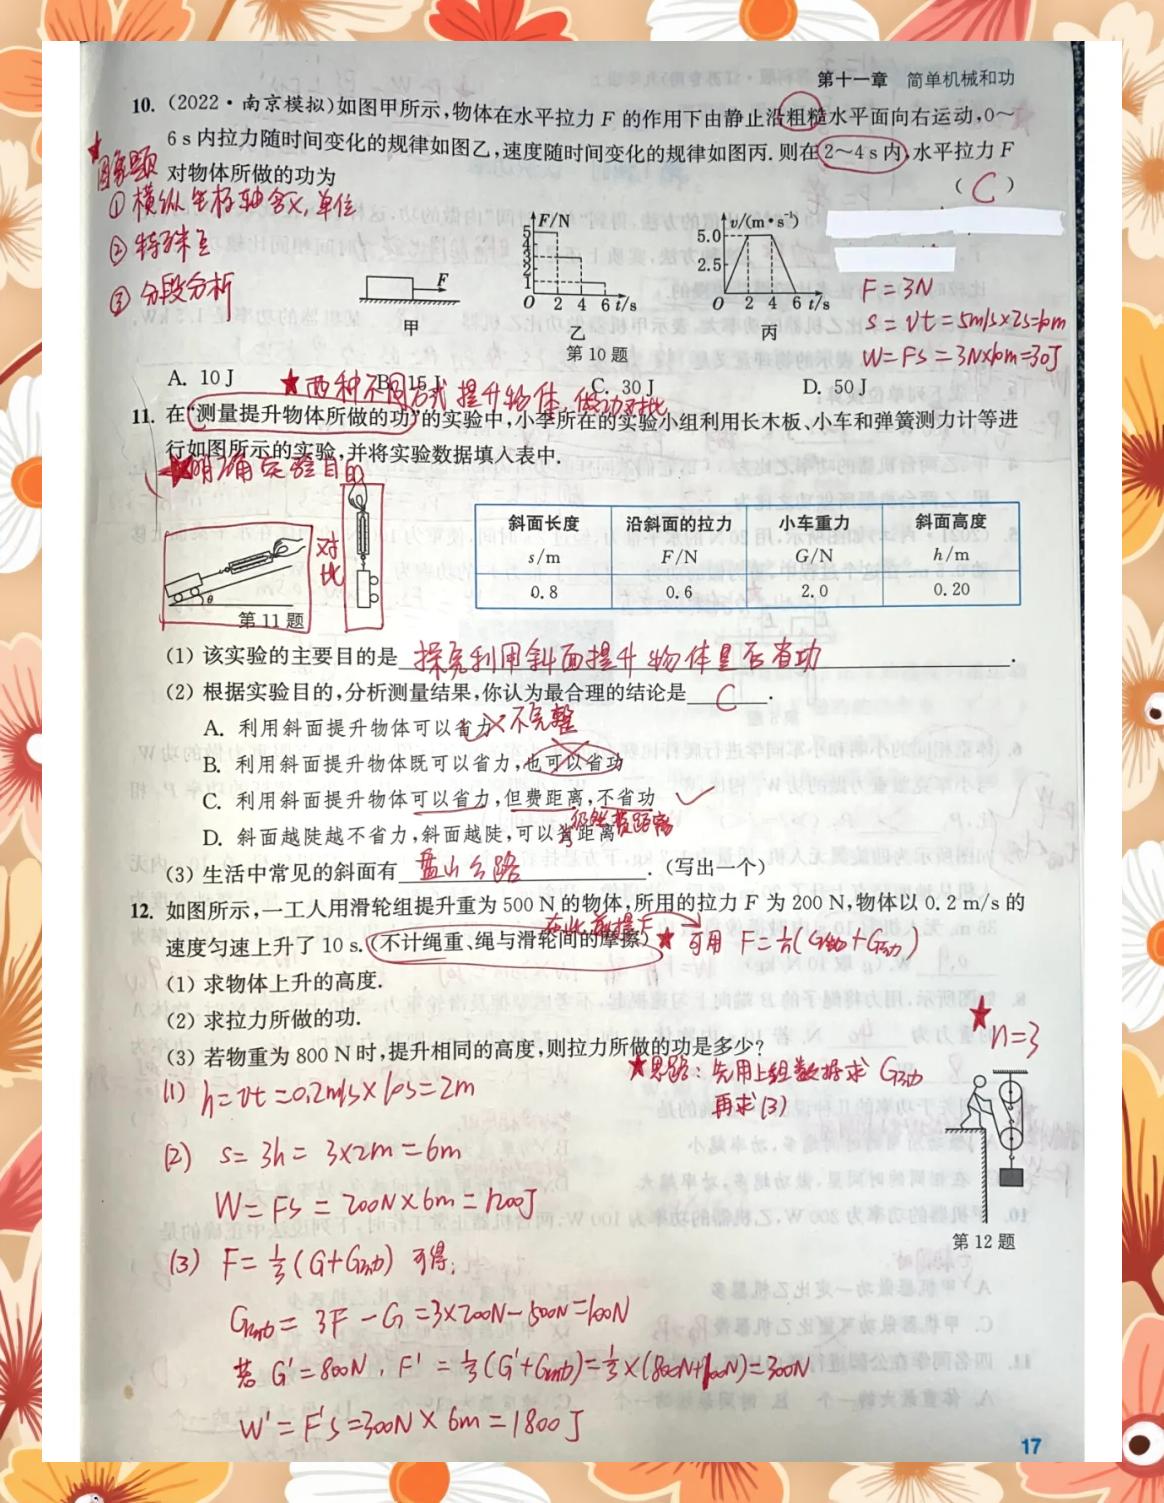 第十一章 简单机械和功
10. (2022·南京模拟)如图甲所示,物体在水平拉力 F 的作用下由静止沿粗糙水平面向右运动,0～
6 s 内拉力随时间变化的规律如图乙,速度随时间变化的规律如图丙. 则在 2～4 s 内,水平拉力 F
对物体所做的功为 ( C )
★图象题
① 横纵坐标轴含义,单位
② 特殊点
③ 分段分析
F
甲
F/N
5
4
3
2
1
O 2 4 6 t/s
乙
v/(m·s⁻¹)
5.0
2.5
O 2 4 6 t/s
丙
第 10 题
F=3N
s=vt=5m/s×2s=10m
W=FS=3N×10m=30J
A. 10 J B. 15 J C. 30 J D. 50 J
★两种不同方式提升物体,做功对比
11. 在“测量提升物体所做的功”的实验中,小李所在的实验小组利用长木板、小车和弹簧测力计等进
行如图所示的实验,并将实验数据填入表中.
★明确实验目的
对比
θ
第 11 题
斜面长度 沿斜面的拉力 小车重力 斜面高度
s/m F/N G/N h/m
0.8 0.6 2.0 0.20
(1) 该实验的主要目的是 探究利用斜面提升物体是否省功 .
(2) 根据实验目的,分析测量结果,你认为最合理的结论是 C .
A. 利用斜面提升物体可以省力 × 不完整
B. 利用斜面提升物体既可以省力,也可以省功
C. 利用斜面提升物体可以省力,但费距离,不省功 ✓
D. 斜面越陡越不省力,斜面越陡,可以省距离
(3) 生活中常见的斜面有 盘山公路 . (写出一个)
12. 如图所示,一工人用滑轮组提升重为 500 N 的物体,所用的拉力 F 为 200 N,物体以 0.2 m/s 的
在此前提下
速度匀速上升了 10 s. (不计绳重、绳与滑轮间的摩擦) ★ 可用 F=1/n(G物+G动)
(1) 求物体上升的高度.
(2) 求拉力所做的功.
(3) 若物重为 800 N 时,提升相同的高度,则拉力所做的功是多少?
★ n=3
★思路:先用上组数据求 G动
再求(3)
第 12 题
(1) h=vt=0.2m/s×10s=2m
(2) s=3h=3×2m=6m
W=FS=200N×6m=1200J
(3) F=1/3(G+G动) 可得:
G动=3F-G=3×200N-500N=100N
若 G'=800N, F'=1/3(G'+G动)=1/3×(800N+100N)=300N
W'=F'S=300N×6m=1800J
17